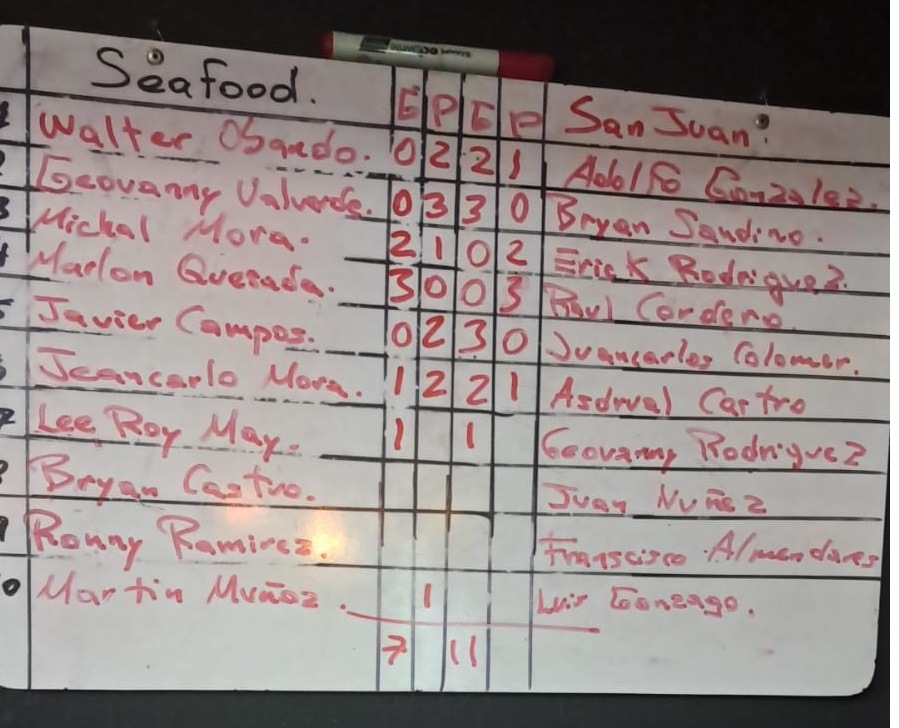 Seafood. G P G P San Juan:
1 Walter Obando. 0 2 2 1 Adolfo Gonzalez.
2 Geovanny Valverde. 0 3 3 0 Bryan Sandino.
3 Michal Mora. 2 1 0 2 Erick Rodriguez.
4 Marlon Quesada. 3 0 0 3 Raul Cordero
5 Javier Campos. 0 2 3 0 Juancarlos Colomer.
6 Jeancarlo Mora. 1 2 2 1 Asdrval Castro
7 Lee Roy May. 1 1 Geovanny Rodriguez
8 Bryan Castro. Juan Nuñez
9 Ronny Ramirez. Franscisco Almendares
10 Martin Muñoz. 1 Luis Gonzago.
7 11